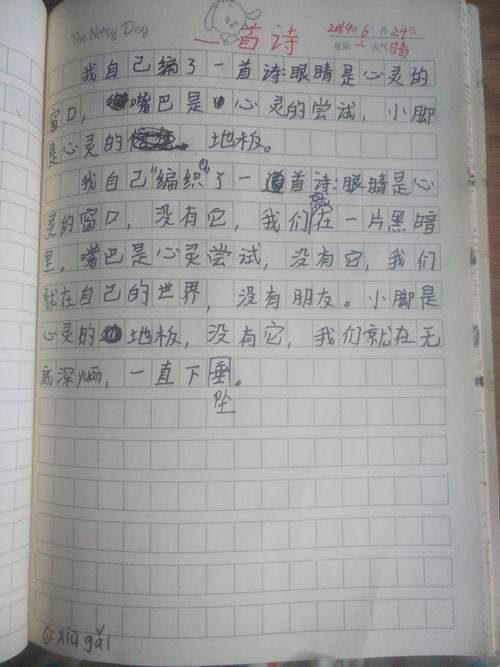 The Nifty Dog
一首诗
2019年6月24日
星期二 天气晴
我自己编了一首诗:眼睛是心灵的
窗口,嘴巴是心灵的尝试,小脚
是心灵的 地板。
我自己"编织"①了一首诗:眼睛是心
灵的窗口,没有它,我们就在一片黑暗
里。嘴巴是心灵尝试,没有它,我们
就在自己的世界,没有朋友。小脚是
心灵的地板,没有它,我们就在无
底深yuān,一直下垂。
坠
①:xiū gǎi